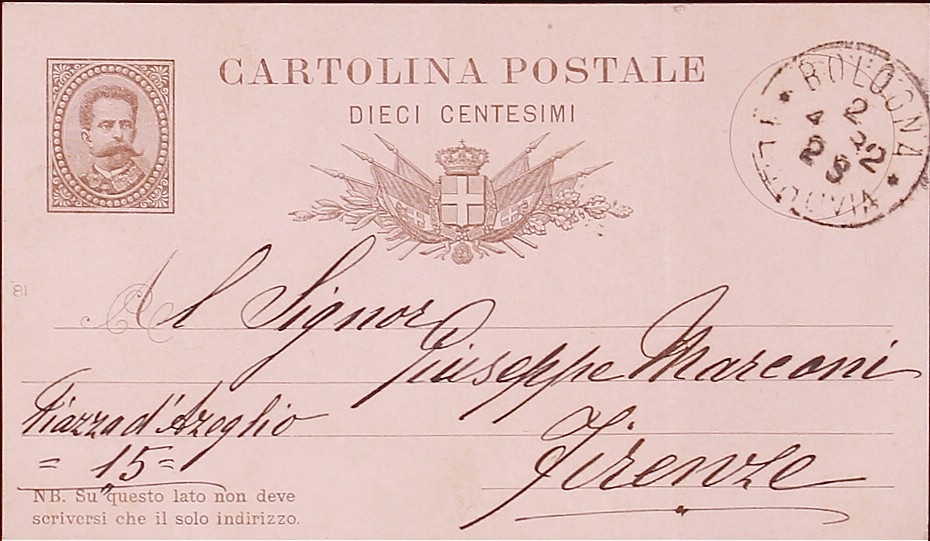 CARTOLINA POSTALE
DIECI CENTESIMI
BOLOGNA
2
4 82
2 S
81
Al Signor
Giuseppe Marconi
Piazza d'Azeglio
= 15 =
Firenze
NB. Su questo lato non deve
scriversi che il solo indirizzo.